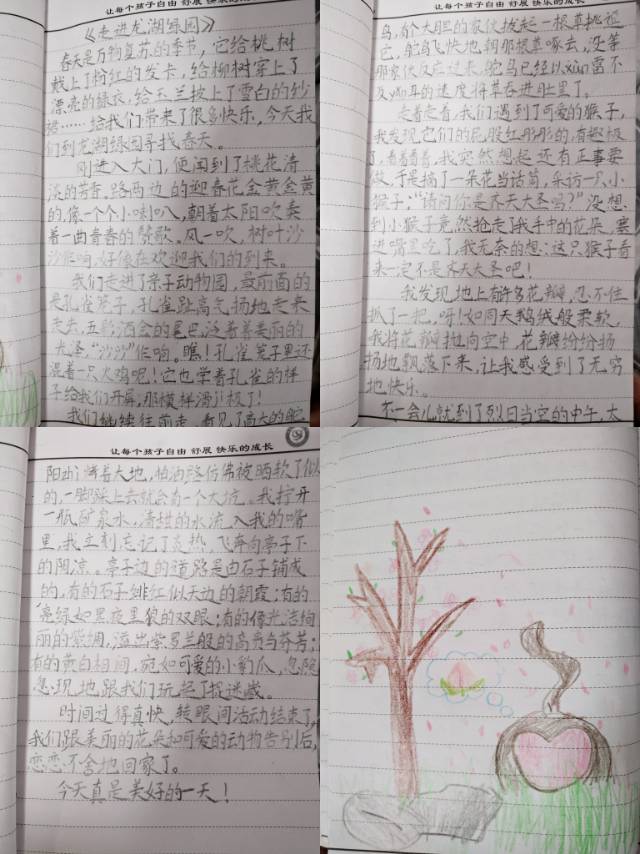 让每个孩子自由 舒展 快乐的成长
《走进龙湖绿园》
春天是万物复苏的季节，它给桃树
戴上了粉红的发卡，给柳树穿上了
漂亮的绿衣，给玉兰披上了雪白的纱
裙……给我们带来了很多快乐，今天我
们到龙湖绿园寻找春天。
刚进入大门，便闻到了桃花清
淡的芳香。路两边的迎春花金黄金黄
的，像一个个小喇叭，朝着太阳吹奏
着一曲青春的赞歌。风一吹，树叶沙
沙作响，好像在欢迎我们的到来。
我们走进了亲子动物园，最前面的
是孔雀笼子，孔雀趾高气扬地走来
走去，五彩洒金的尾巴泛着着美丽的
光泽，“沙沙”作响。瞧！孔雀笼子里还
混着一只火鸡呢！它也学着孔雀的样
子给我们开屏，那模样滑jī极了！
我们继续往前走，看见了高大的鸵
让每个孩子自由 舒展 快乐的
鸟，有个大胆的家伙拔起一根草挑逗
它，鸵鸟飞快地朝那根草啄去，没等
那家伙反应过来，鸵鸟已经以xùn雷不
及yǎn耳的速度将草吞进肚里了。
走着走着，我们遇到了可爱的猴子，
我发现它们的屁股红彤彤的，有趣极
了，看着看着，我突然想起还有正事要
做，于是摘了一朵花当话筒，采访一只小
猴子：“请问你是齐天大圣吗？”没想
到小猴子竟然抢走了我手中的花朵，塞
进嘴里吃了，我无奈的想：这只猴子看
来一定不是齐天大圣吧！
我发现地上有许多花瓣，忍不住
抓了一把，呀！如同天鹅绒般柔软，
我将花瓣抛向空中，花瓣纷纷扬
扬地飘落下来，让我感受到了无穷
地快乐。
不一会儿就到了烈日当空的中午，太
让每个孩子自由 舒展 快乐的成长
阳zhì烤着大地，柏油路仿佛被晒软了似
的，一脚踩上去就会有一个大坑。我拧开
一瓶矿泉水，清甜的水流入我的嘴
里，我立刻忘记了炎热，飞奔向亭子下
的阴凉。亭子边的道路是由石子铺成
的，有的石子绯红似天边的朝霞；有的
亮绿如黑夜里狼的双眼；有的像光洁绚
丽的紫绸，溢出紫罗兰般的高贵与芬芳；
有的黄白相间，宛如可爱的小豹爪，忽隐
忽现地跟我们玩起了捉迷藏。
时间过得真快，转眼间活动结束了，
我们跟美丽的花朵和可爱的动物告别后，
恋恋不舍地回家了。
今天真是美好的一天！